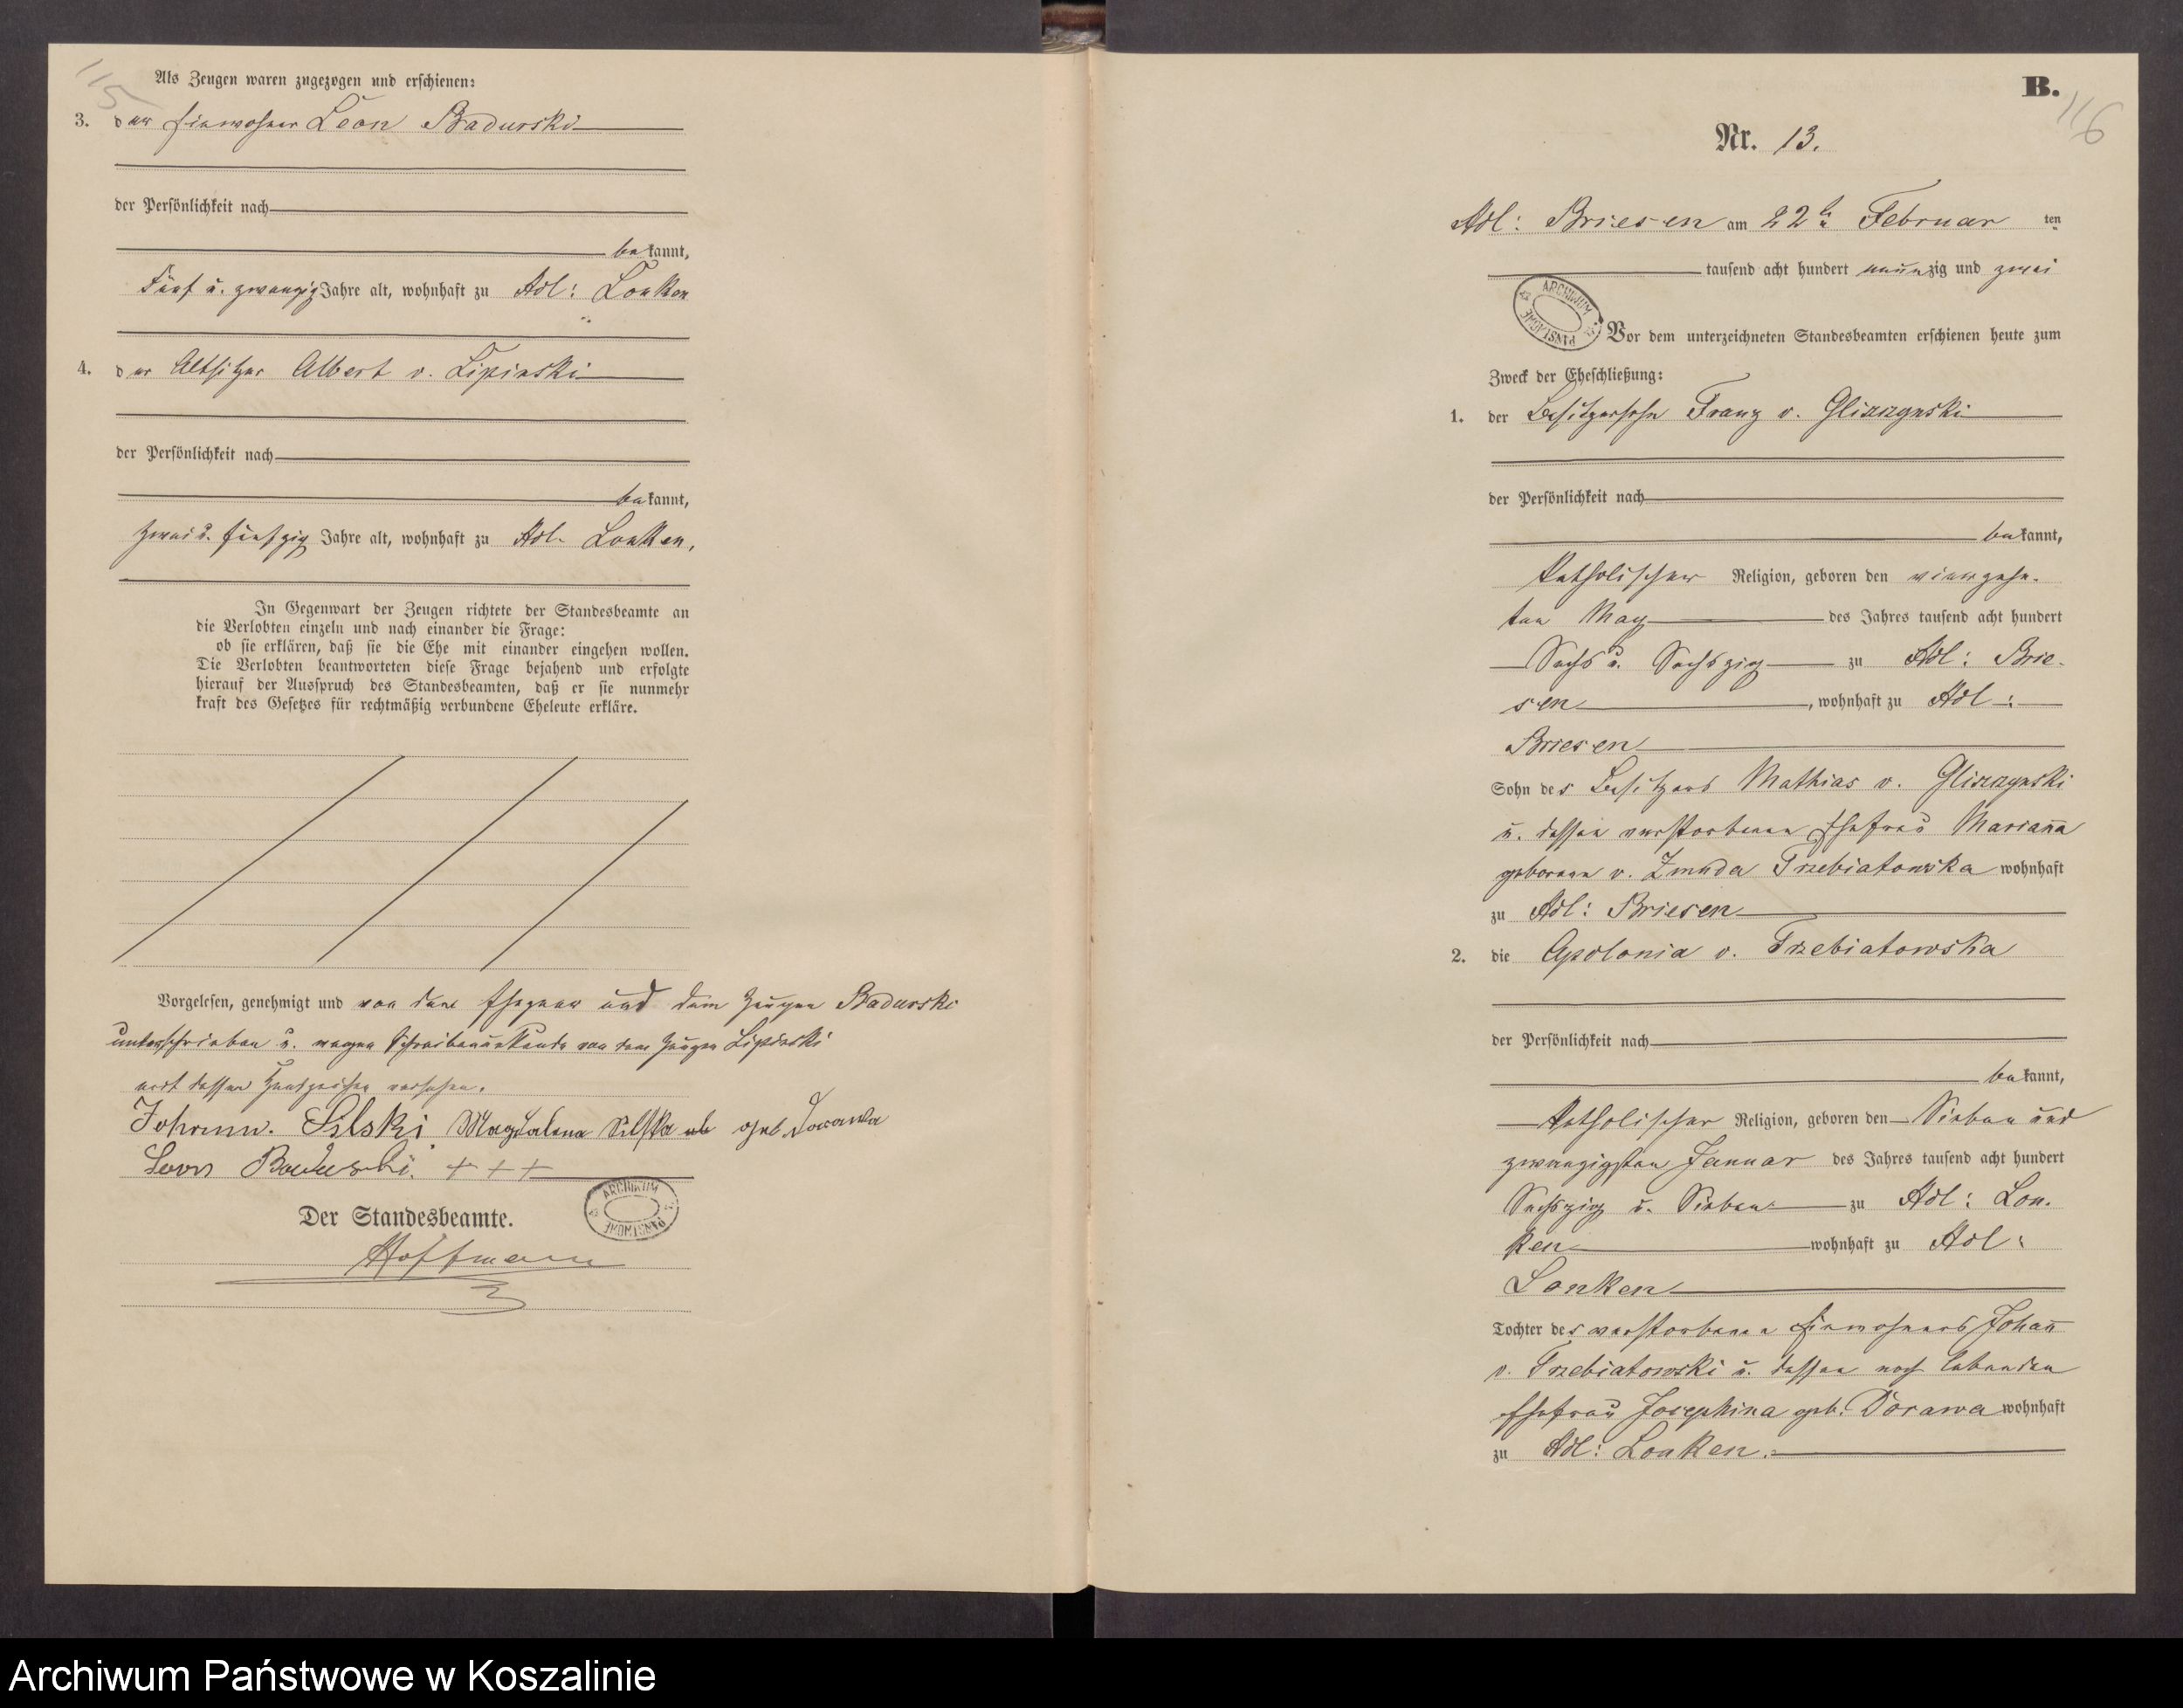 115
Als Zeugen waren zugezogen und erschienen:
3. der Einwohner Leon Badurski
der Persönlichkeit nach
bekannt,
Fünf u. zwanzig Jahre alt, wohnhaft zu Adl: Lonken
4. der Altsitzer Albert v. Lipinski
der Persönlichkeit nach
bekannt,
zwei u. fünfzig Jahre alt, wohnhaft zu Adl. Lonken,
In Gegenwart der Zeugen richtete der Standesbeamte an
die Verlobten einzeln und nach einander die Frage:
ob sie erklären, daß sie die Ehe mit einander eingehen wollen.
Die Verlobten beantworteten diese Frage bejahend und erfolgte
hierauf der Ausspruch des Standesbeamten, daß er sie nunmehr
kraft des Gesetzes für rechtmäßig verbundene Eheleute erkläre.
Vorgelesen, genehmigt und von dem Ehepaar und dem Zeugen Badurski
unterschrieben u. wegen Schreibensunkunde von dem Zeugen Lipinski
mit dessen Handzeichen versehen.
Johann. Silski Magdalena Silska geb Dorawa
Leon Badurski. + + +
ARCHIWUM PAŃSTWOWE
Der Standesbeamte.
Hoffmann
B.
116
Nr. 13.
Adl: Briesen am 22 Februar ten
tausend acht hundert neunzig und zwei
ARCHIWUM PAŃSTWOWE
Vor dem unterzeichneten Standesbeamten erschienen heute zum
Zweck der Eheschließung:
1. der Besitzersohn Franz v. Gliszczynski
der Persönlichkeit nach
bekannt,
katholischer Religion, geboren den vierzehn-
ten May des Jahres tausend acht hundert
Sechs u. Sechszig zu Adl: Brie-
sen, wohnhaft zu Adl:
Briesen
Sohn des Besitzers Mathias v. Gliszczynski
u. dessen verstorbenen Ehefrau Marianna
geborene v. Zmuda Trzebiatowska wohnhaft
zu Adl: Briesen
2. die Apolonia v. Trzebiatowska
der Persönlichkeit nach
bekannt,
katholischer Religion, geboren den Sieben und
zwanzigsten Januar des Jahres tausend acht hundert
Sechszig u. Sieben zu Adl: Lon-
ken wohnhaft zu Adl:
Lonken
Tochter des verstorbenen Einwohners Johann
v. Trzebiatowski u. dessen noch lebenden
Ehefrau Josephina geb. Dorawa wohnhaft
zu Adl: Lonken.
Archiwum Państwowe w Koszalinie